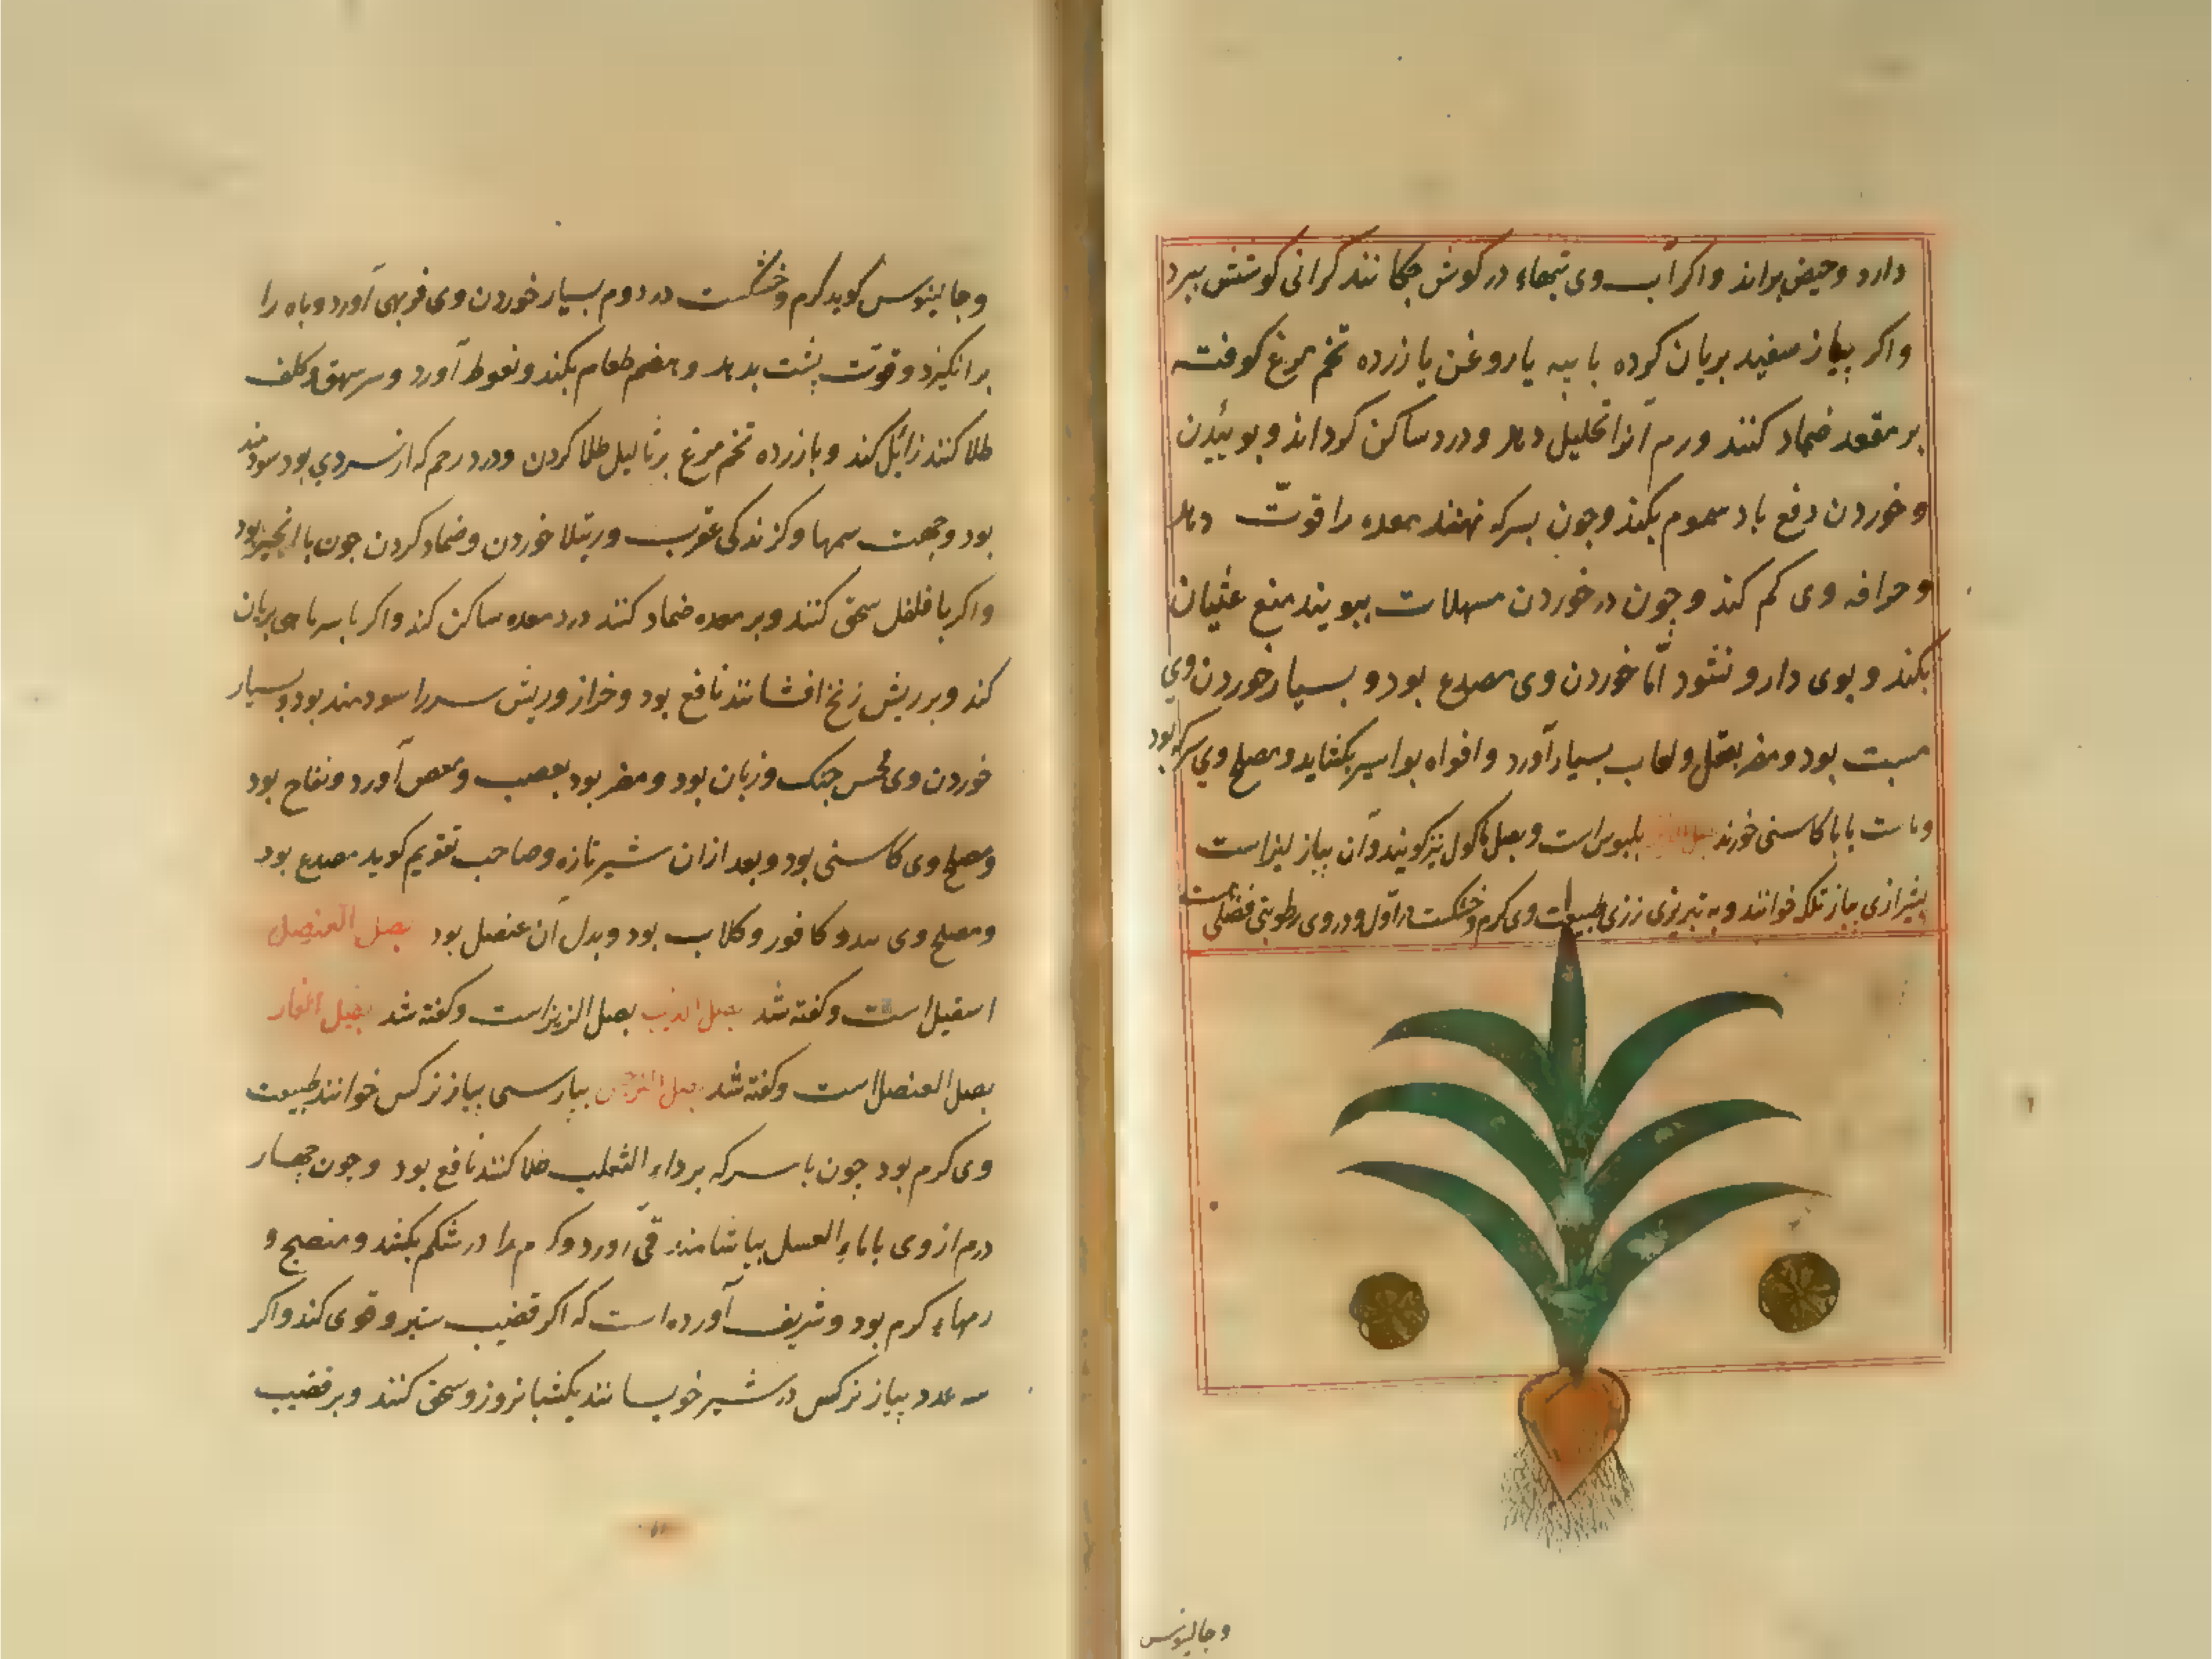 دارد و حیض براند و اکر آب وی تنهاء در کوش چکانند کرانی کوشش ببرد
واکر پیاز سفید بریان کرده با پیه یا روغن یا زرده تخم مرغ کوفته
بر مقعد ضماد کنند ورم آنرا تحلیل دهد و درد ساکن کرداند و بوئیدن
و خوردن دفع باد سموم بکند و چون بسرکه نهند معده را قوتّ دهد
و حرافه وی کم کند و چون در خوردن مسهلات ببویند منع غثیان
بکند و بوی دارو نشود امّا خوردن وی مصدع بود و بسیار خوردن وی
مسبت بود و مضر بعقل و لعاب بسیار آورد و افواه بواسیر بکشاید و مصلح وی سرکه بود
و ماست یا با کاسنی خورند بصل الزیر بلبوس است و بصل ماکول نیز کویند و آن پیاز لیز است
بشیرازی پیاز تلکه خوانند و به تبریزی رزی طبیعت وی کرم و خشکست در اوّل و در وی رطوبتی فضلی است
و جالینوس
و جالینوس کوید کرم و خشکست در دوم بسیار خوردن وی فربهی آورد و باه را
برانکیزد و قوّت پشت بدهد و هضم طعام بکند و نعوظ آورد و سر بهق و کلف
طلا کنند زائل کند و با زرده تخم مرغ بر ثالیل طلا کردن و درد رحم که از سردی بود سودمند
بود و جهت سمها و کزندکی عقرب و رتیلا خوردن و ضماد کردن چون با انجیر بود
واکر با فلفل سحق کنند و بر معده ضماد کنند درد معده ساکن کند و اکر با سر ماهی بریان
کند و بر ریش زنخ افشانند نافع بود و خراز و ریش سر را سودمند بود و بسیار
خوردن وی مخس جنک و زبان بود و مضر بود بعصب و مغص آورد و نفاح بود
و مصلح وی کاسنی بود و بعد ازان شیر تازه و صاحب تقویم کوید مصدع بود
و مصلح وی کافور و کلاب بود و بدل آن عنصل بود بصل العنصل
اسقیل است و کفته شد بصل الذیب بصل الزیز است و کفته شد بصل الفار
بصل العنصل است و کفته شد بصل النرجس بپارسی پیاز نرکس خوانند طبیعت
وی کرم بود چون با سرکه بر داء الثعلب طلا کنند نافع بود و چون چهار
درم از وی با ماء العسل بیاشامند قی آورد و کرم را در شکم بکشد و منضج و
رمهاء کرم بود و شریف آورده است که اکر قضیب ستبر و قوی کند و اکر
سه عدد پیاز نرکس در شیر خویسانند یکشبانروز و سحق کنند و بر قضیب